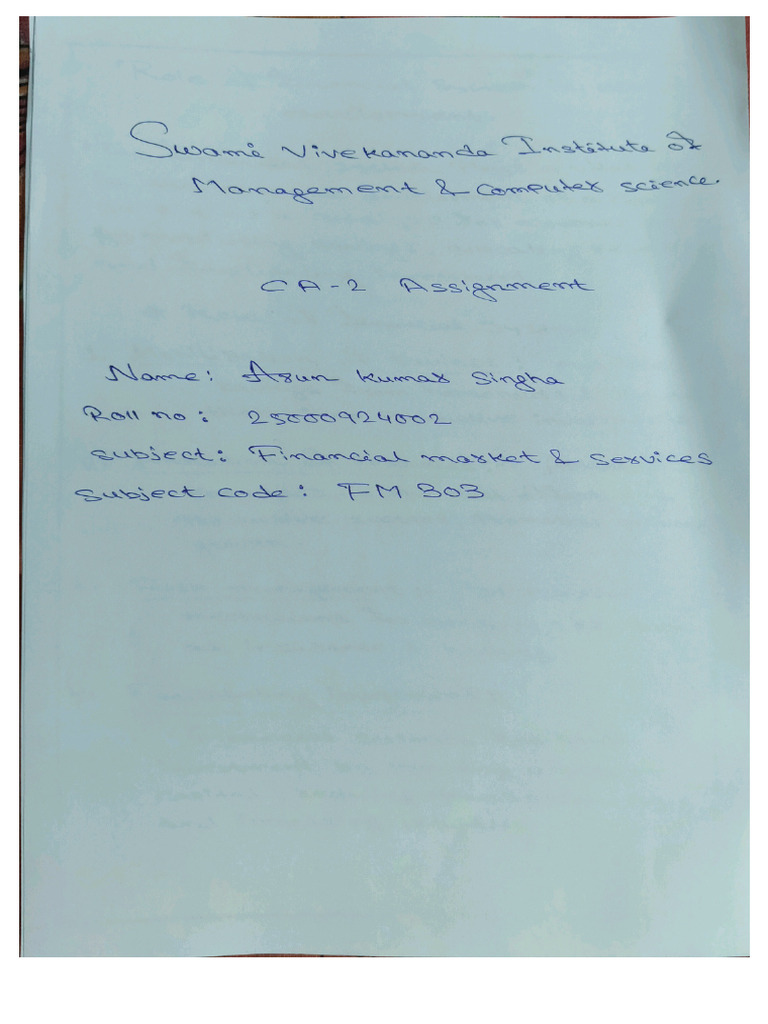 Swami Vivekananda Institute of
Management & Computer science.
CA-2 Assignment
Name: Arun Kumar Singha
Roll no: 25000924002
Subject: Financial market & Services
Subject code: FM 303